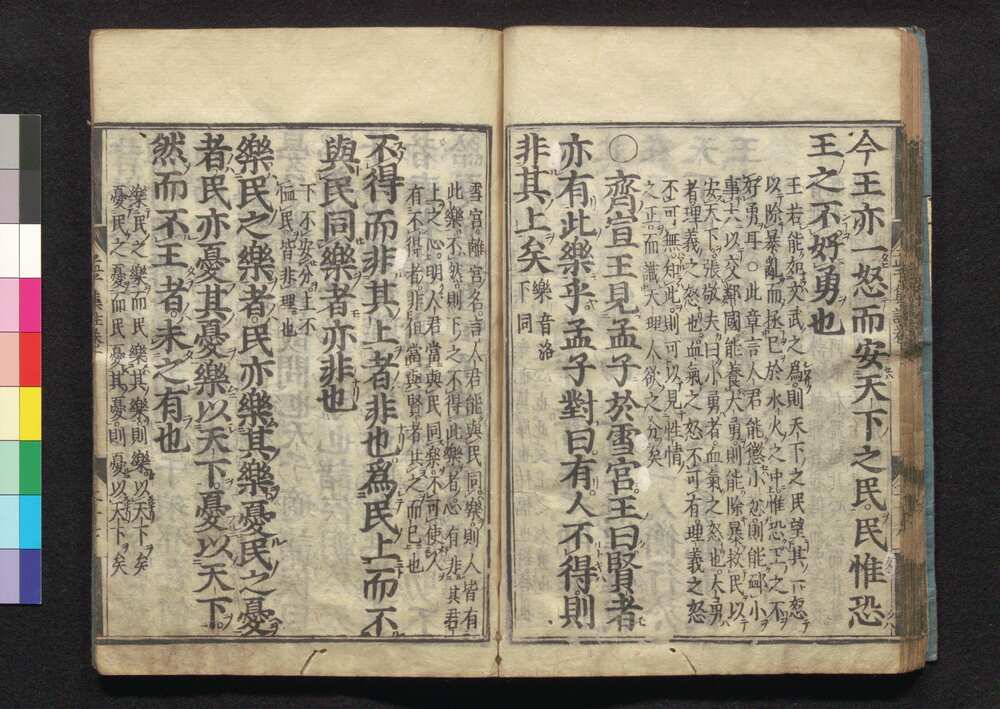 今王亦一怒而安天下之民民惟恐
王之不好勇也
王若能如文武之爲則天下之民望其一怒
以除暴亂而拯己於水火之中惟恐王之不
好勇耳○此章言人君能懲小忿則能恤小
事大以交鄰國能養大勇則能除暴救民以
安天下張敬夫曰小勇者血氣之怒也大勇
者理義之怒也血氣之怒不可有理義之怒
不可無知此則可以見性情
之正而識天理人欲之分矣
○齊宣王見孟子於雪宮王曰賢者
亦有此樂乎孟子對曰有人不得則
非其上矣
樂音洛
下同
雪宮離宮名言人君能與民同樂則人皆有
此樂不然則下之不得此樂者必有非其君
上之心明人君當與民同樂不可使人
有不得者非但當與賢者共之而已也
不得而非其上者非也爲民上而不
與民同樂者亦非也
下不安分上不
恤民皆非理也
樂民之樂者民亦樂其樂憂民之憂
者民亦憂其憂樂以天下憂以天下
然而不王者未之有也
樂民之樂而民樂其樂則樂以天下矣
憂民之憂而民憂其憂則憂以天下矣